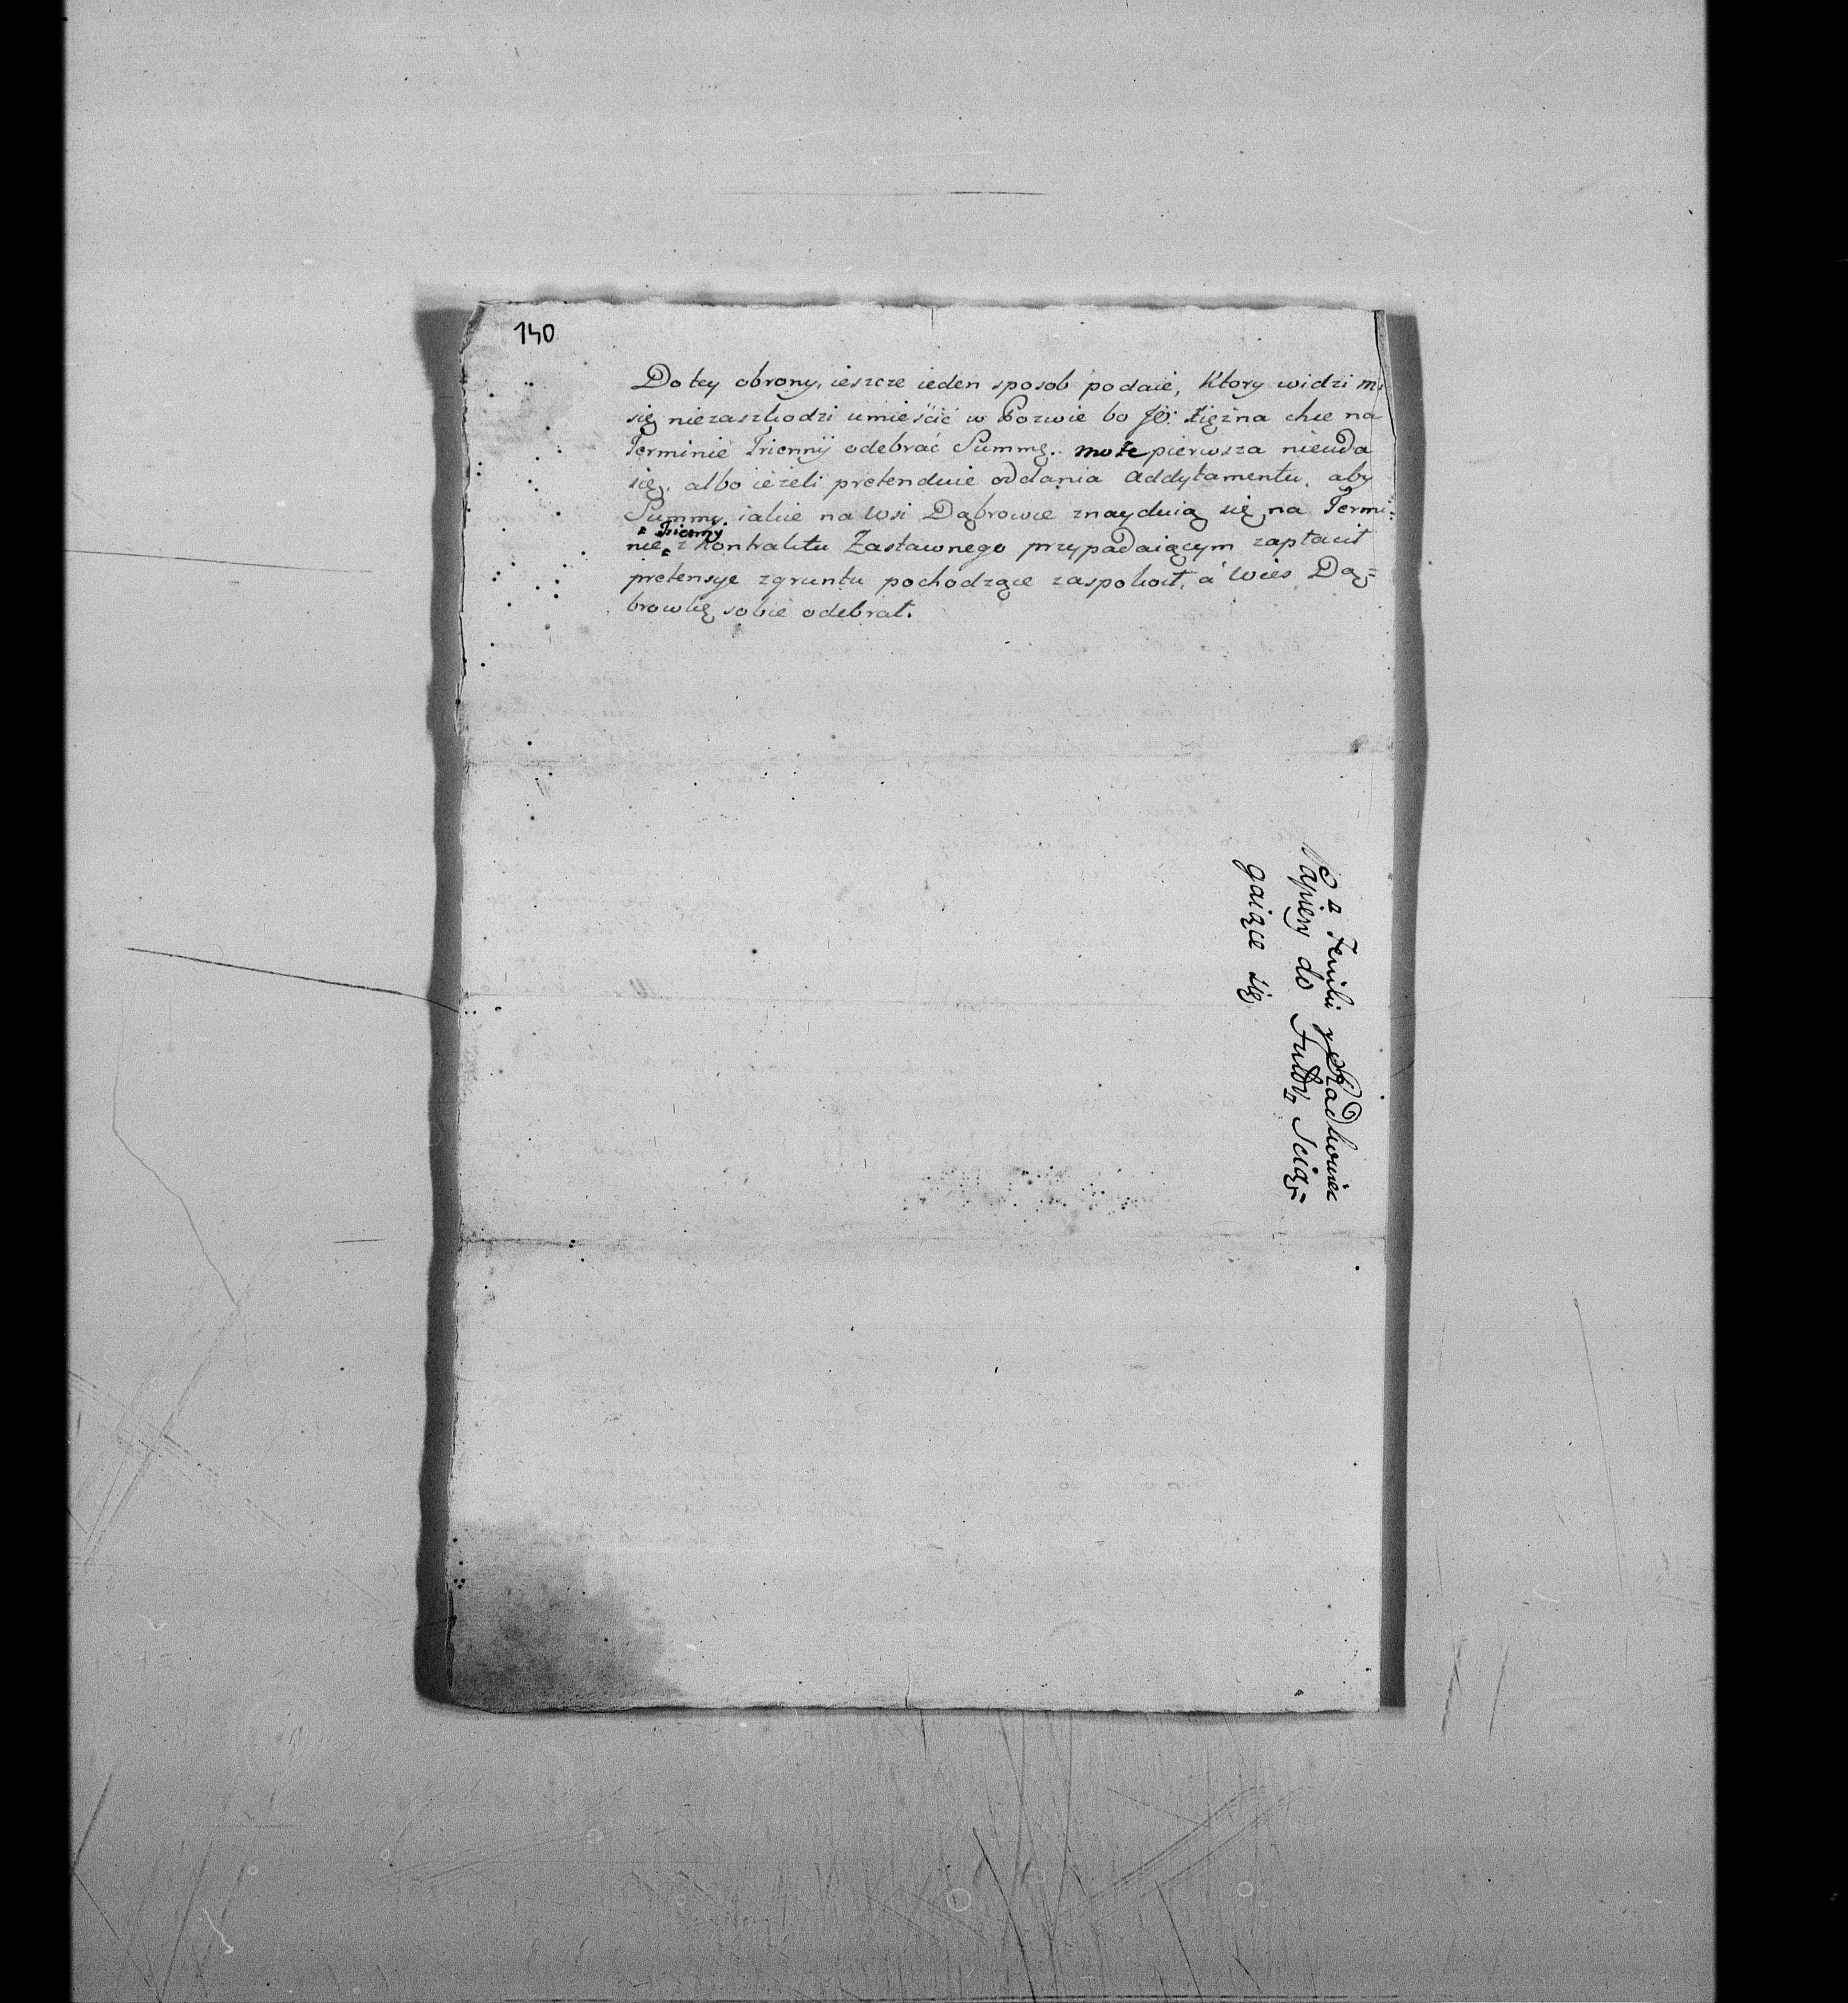 140
Do tey obrony, ieszcze ieden sposob podaię, ktory widzi mi
się niezaszkodzi umieścić w Pozwie bo JO: Xiężna chce na
Terminie Trienny odebrać Summę. może pierwsza nieuda
się, albo ieżeli pretenduie oddania Addytamentu, aby
Summy iakie na Wsi Dąbrowie znayduią się na Termi:
Trienny
nie z Kontraktu Zastawnego przypadaiącym zapłacił
pretensye zgruntu pochodzące zaspokoił, a Wieś Dą=
browkę sobie odebrał.
Papiery do Fundi Scią=
gaiące się